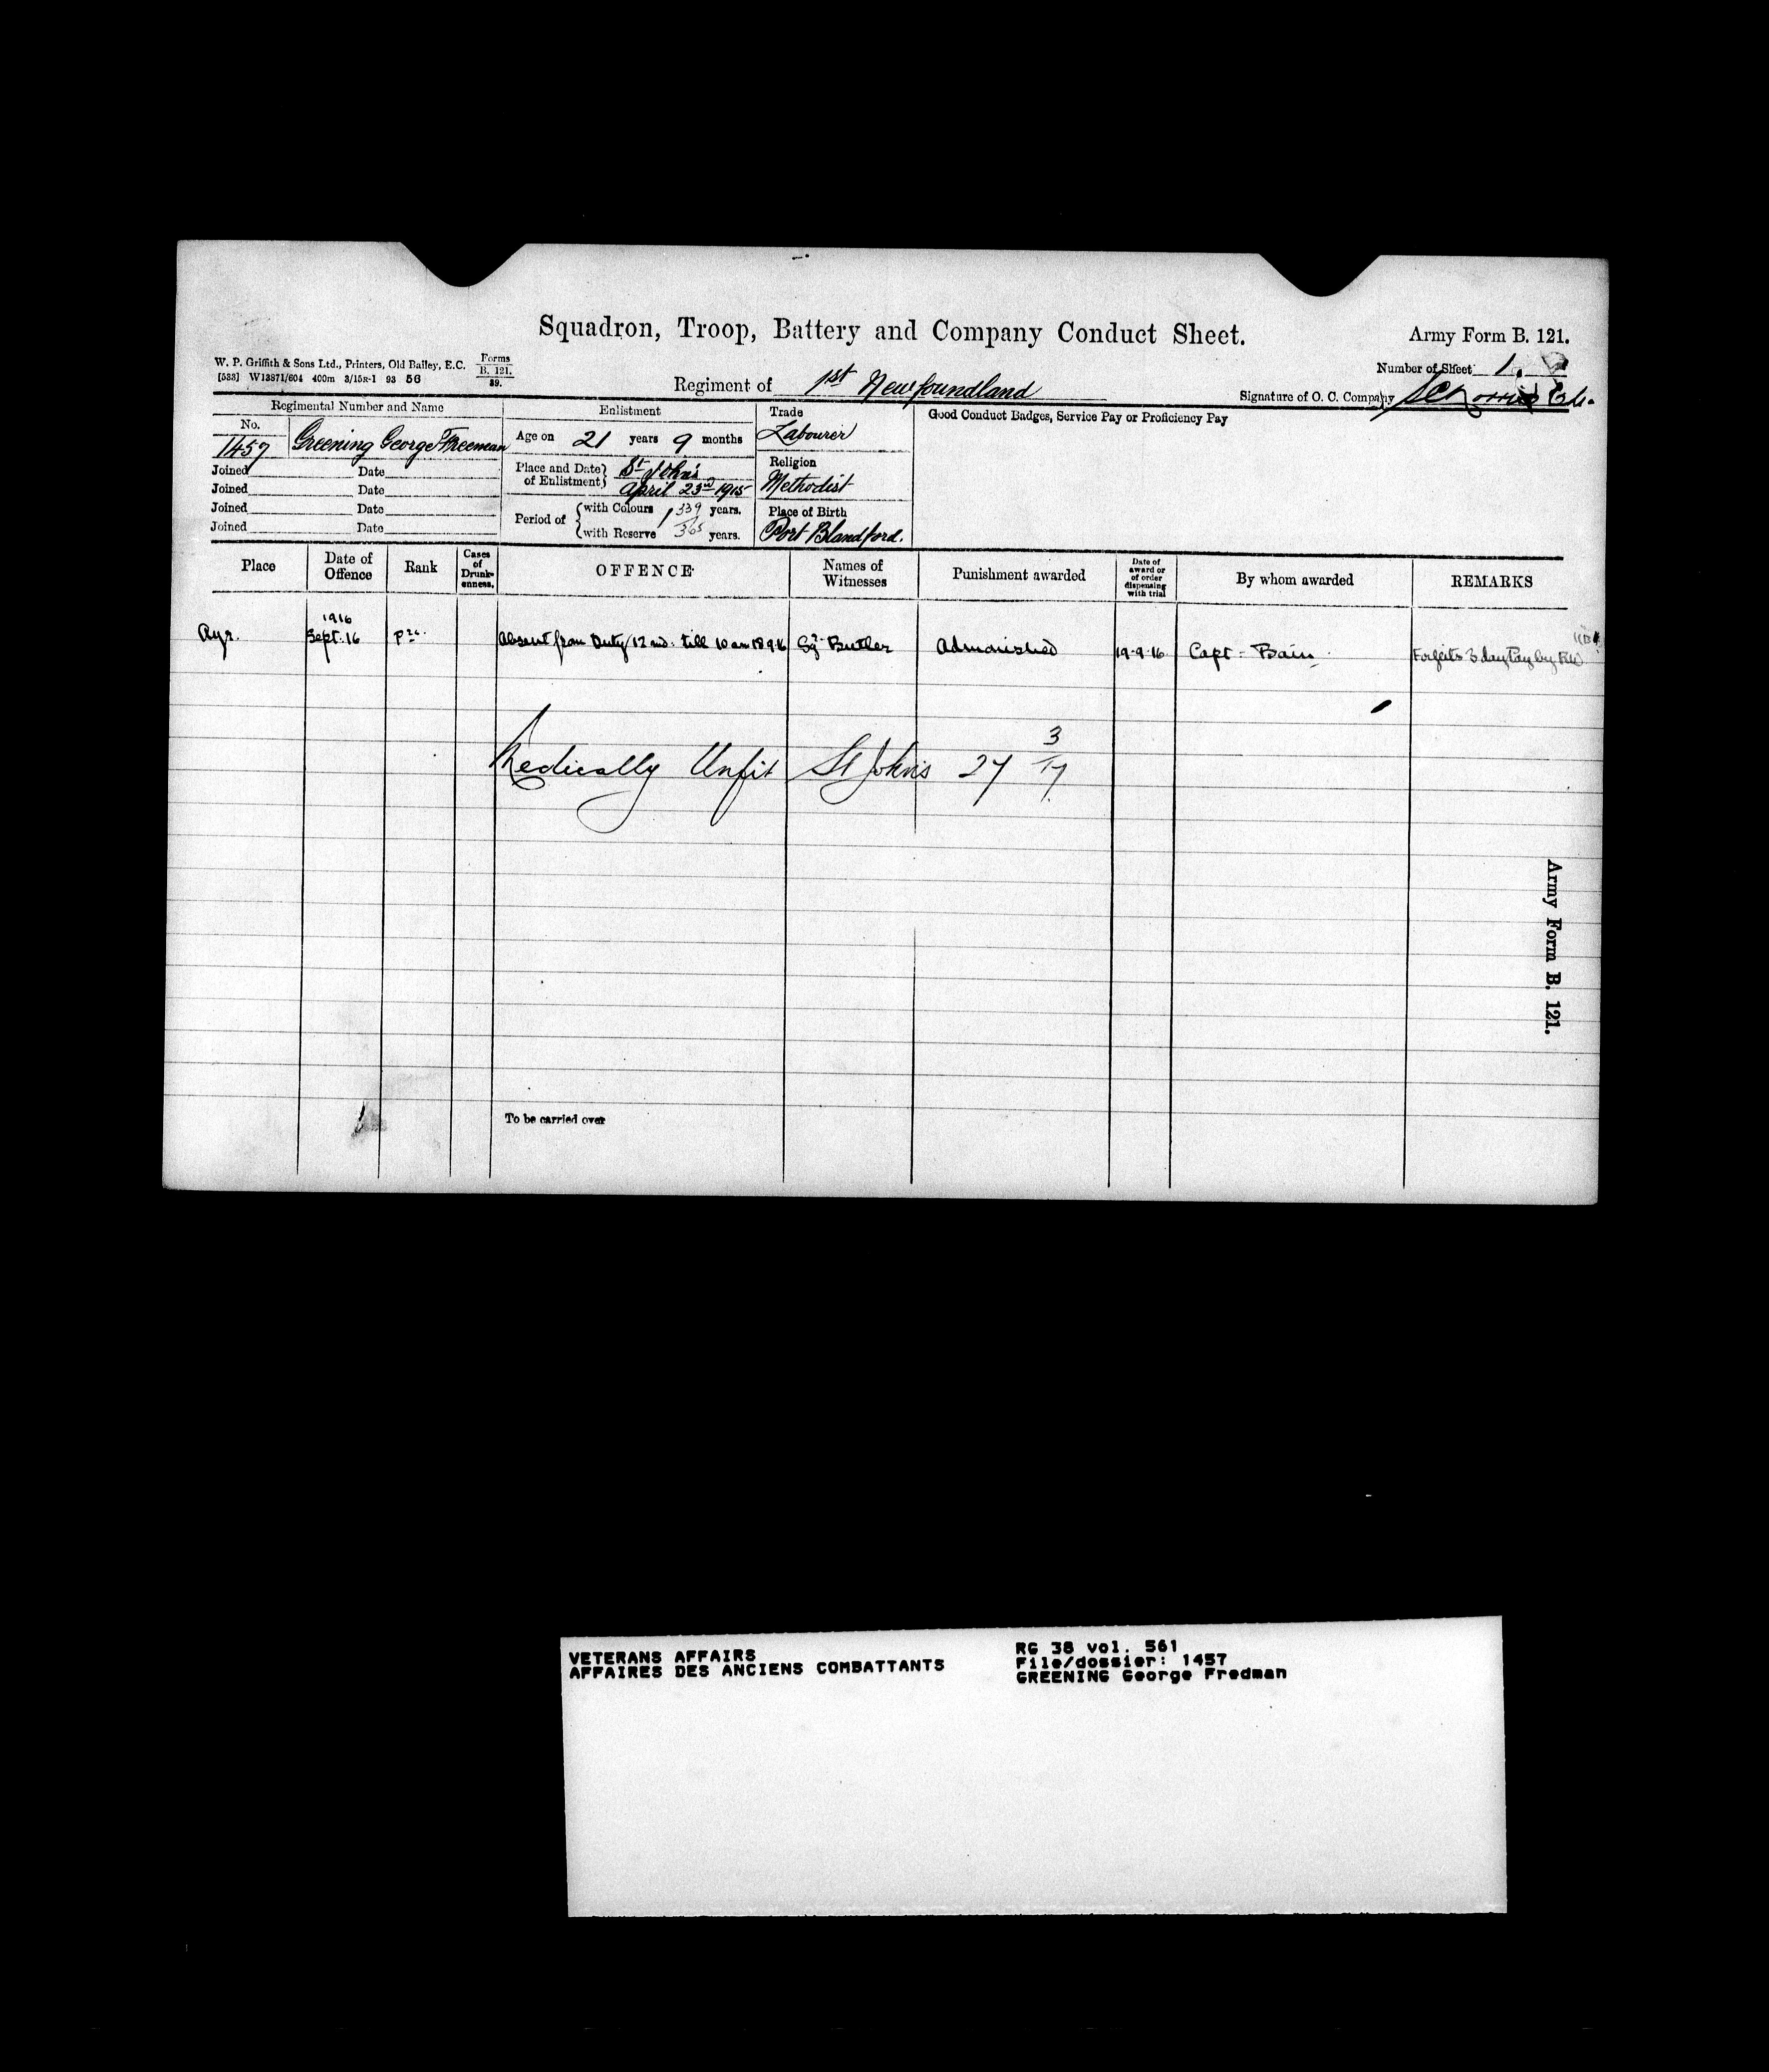 Squadron, Troop, Battery and Company Conduct Sheet.
Army Form B. 121.
W. P. Griffith & Sons Ltd., Printers, Old Bailey, E.C.
[533] W13871/604 400m 3/15R-1 93 56
Forms
B. 121.
39.
Number of Sheet 1.
Regiment of 1st Newfoundland
Signature of O. C. Company
Regimental Number and Name
No.
1457 Greening George Freeman
Joined Date
Joined Date
Joined Date
Joined Date
Enlistment
Age on 21 years 9 months
Place and Date of Enlistment St John's
April 23rd 1915
Period of with Colours 1 339/365 years.
with Reserve years.
Trade
Labourer
Religion
Methodist
Place of Birth
Port Blandford.
Good Conduct Badges, Service Pay or Proficiency Pay
Place Date of Offence Rank Cases of Drunkenness. OFFENCE Names of Witnesses Punishment awarded Date of award or of order dispensing with trial By whom awarded REMARKS
1916
Ayr. Sept. 16 Pte. Absent from Duty 12 md. till 10 am 18 9 16 Sgt Butler Admonished 19-9-16 Capt - Bain Forfeits 3 day Pay by RW
Medically Unfit St John's 27 3/17
To be carried over
Army Form B. 121.
VETERANS AFFAIRS
AFFAIRES DES ANCIENS COMBATTANTS
RG 38 vol. 561
File/dossier: 1457
GREENING George Fredman